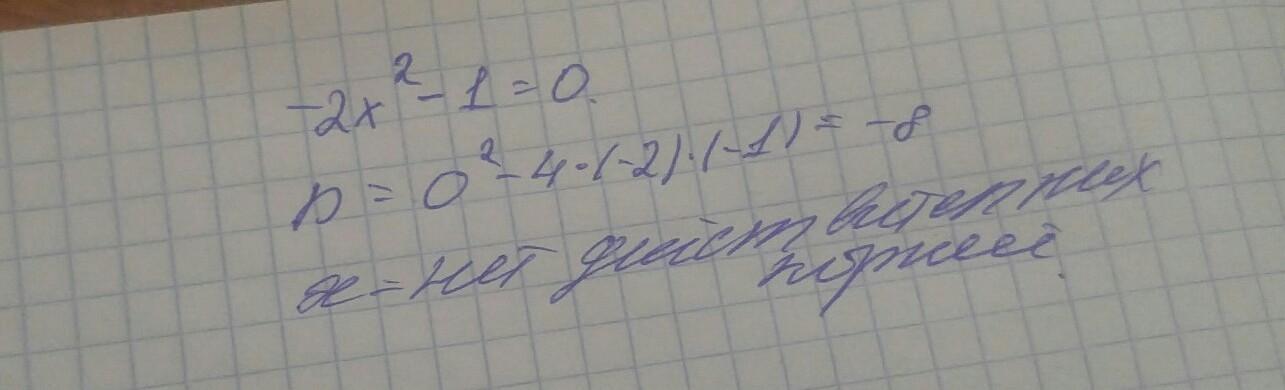 -2x² - 1 = 0.
D = 0² - 4·(-2)·(-1) = -8
x = нет действительных
корней.